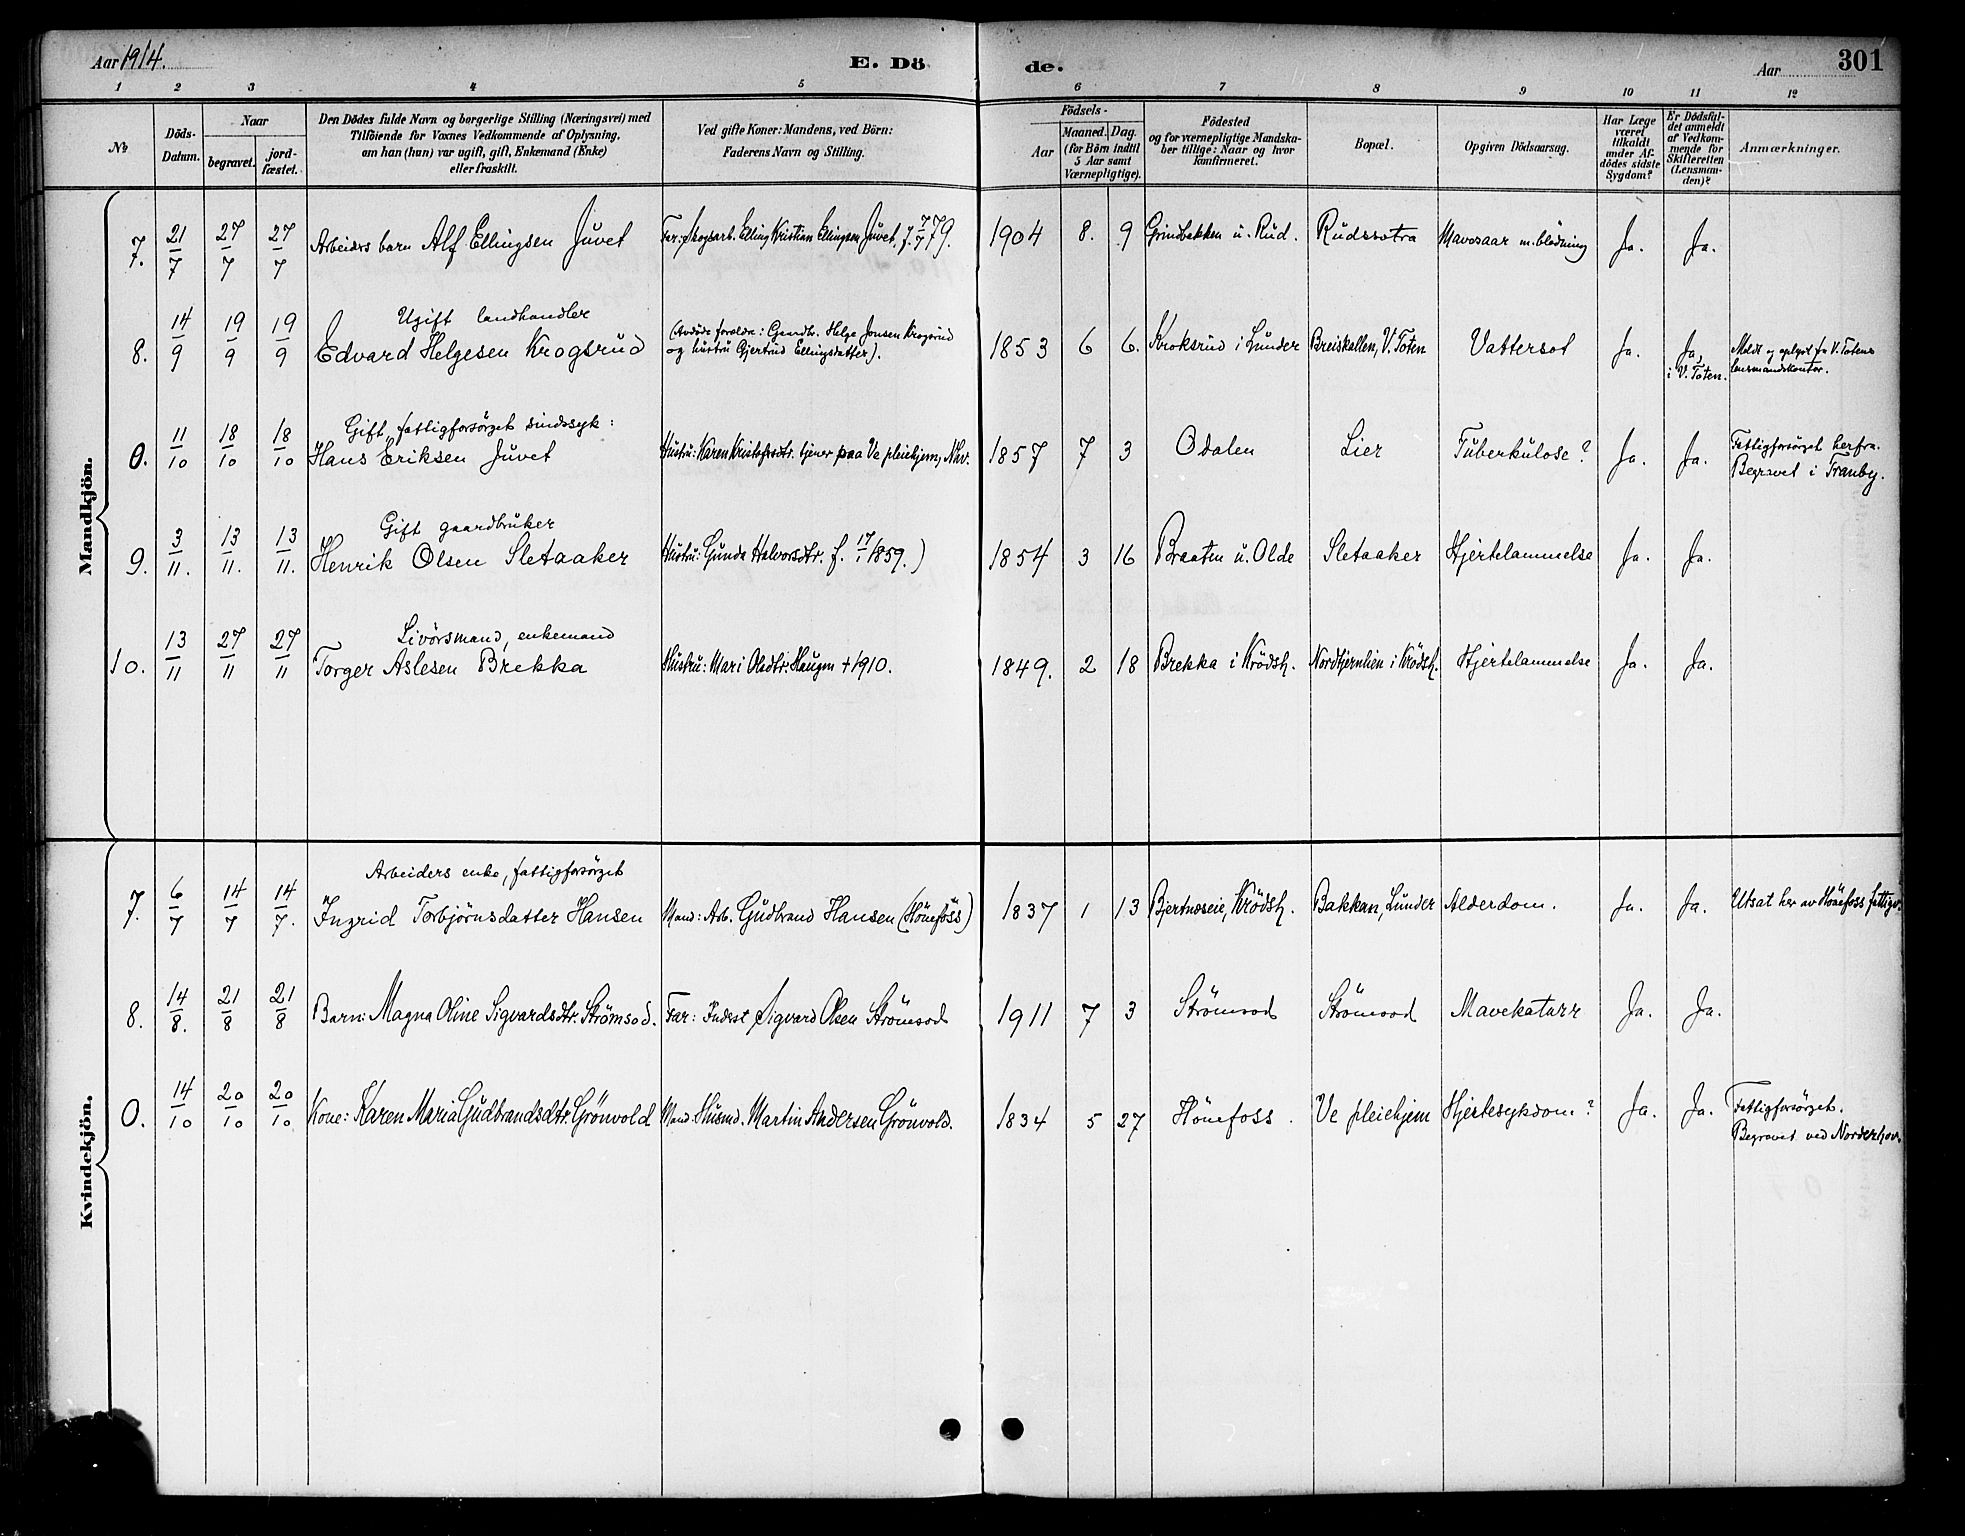 Aar 1914.
E. Dö
de.
Aar
301
1 2 3 4 5 6 7 8 9 10 11 12
№
Döds-
Datum.
Naar
begravet.
jord-
fæstet.
Den Dödes fulde Navn og borgerlige Stilling (Næringsvei) med
Tilföiende for Voxnes Vedkommende af Oplysning,
om han (hun) var ugift, gift, Enkemand (Enke)
eller fraskilt.
Ved gifte Koner: Mandens, ved Börn:
Faderens Navn og Stilling.
Födsels-
Aar
Maaned. Dag.
(for Börn indtil
5 Aar samt
Værnepligtige).
Födested
og for værnepligtige Mandska-
ber tillige: Naar og hvor
konfirmeret.
Bopæl.
Opgiven Dödsaarsag.
Har Læge
været
tilkaldt
under Af-
dödes sidste
Sygdom?
Er Dödsfal-
det anmeldt
af Vedkom-
mende for
Skifteretten
(Lensman-
den)?
Anmærkninger.
Mandkjön.
7. 21/7 27/7 27/7 Arbeiders barn Alf Ellingsen Juvet Far: Skogsarb. Elling Kristian Ellingsen Juvet, f. 7/7 79. 1904 8. 9 Grindbakken u. Rud. Rudssætra Mavesaar m. blødning Ja. Ja.
Ugift landhandler
8. 14/9 19/9 19/9 Edvard Helgesen Krogsrud (Avdøde forældre: Gaardbr. Helge Jonsen Krogsrud
og hustru Gjertrud Ellingsdatter). 1853 6 6. Kroksrud i Lunder Breiskallen, V. Toten Vattersot Ja. Ja,
i V. Toten. Meldt og oplyst fra V. Totens
lensmandskontor.
Gift, fattigforsørget sindssyk:
0. 11/10 18/10 18/10 Hans Eriksen Juvet Hustru: Karen Kristofersdtr. tjener paa Ve pleiehjem, Nhv. 1857 7 3 Odalen Lier Tuberkulose? Ja. Ja. Fattigforsørget herfra.
Begravet i Tranby.
Gift gaardbruker
9. 3/11. 13/11. 13/11. Henrik Olsen Sletaaker Hustru: Gunda Halvorsdtr. f. 17/1 1859.) 1854 3 16 Braaten u. Olde Sletaaker Hjertelammelse Ja. Ja.
Livörsmand, enkemand
10. 13/11 27/11 27/11 Torger Aslesen Brekka Hustru: Mari Olsdtr. Haugen + 1910. 1849. 2 18 Brekka i Krödsh. Nordtjernlien i Krödsh. Hjertelammelse Ja. Ja.
Kvindekjön.
Arbeiders enke, fattigforsørget
7. 6/7 14/7 14/7. Ingrid Torbjörnsdatter Hansen Mand: Arb. Gudbrand Hansen (Hönefoss) 1837 1 13 Bjertnæseie, Krödsh. Bakkan, Lunder Alderdom. Ja. Ja. Utsat her av Hönefoss fattigv.
8. 14/8. 21/8 21/8 Barn: Magna Oline Sigvardsdtr. Strömsod. Far: Inderst Sigvard Olsen Strömsod 1911 7 3 Strömsod Strömsod Mavekatarr Ja. Ja.
0. 14/10 20/10 20/10 Kone: Karen Maria Gudbrandsdtr. Grönvold Mand: Husmd. Martin Andersen Grönvold. 1834 5 27 Hönefoss. Ve pleiehjem Hjertesykdom? Ja. Ja. Fattigforsørget.
Begravet ved Norderhov.